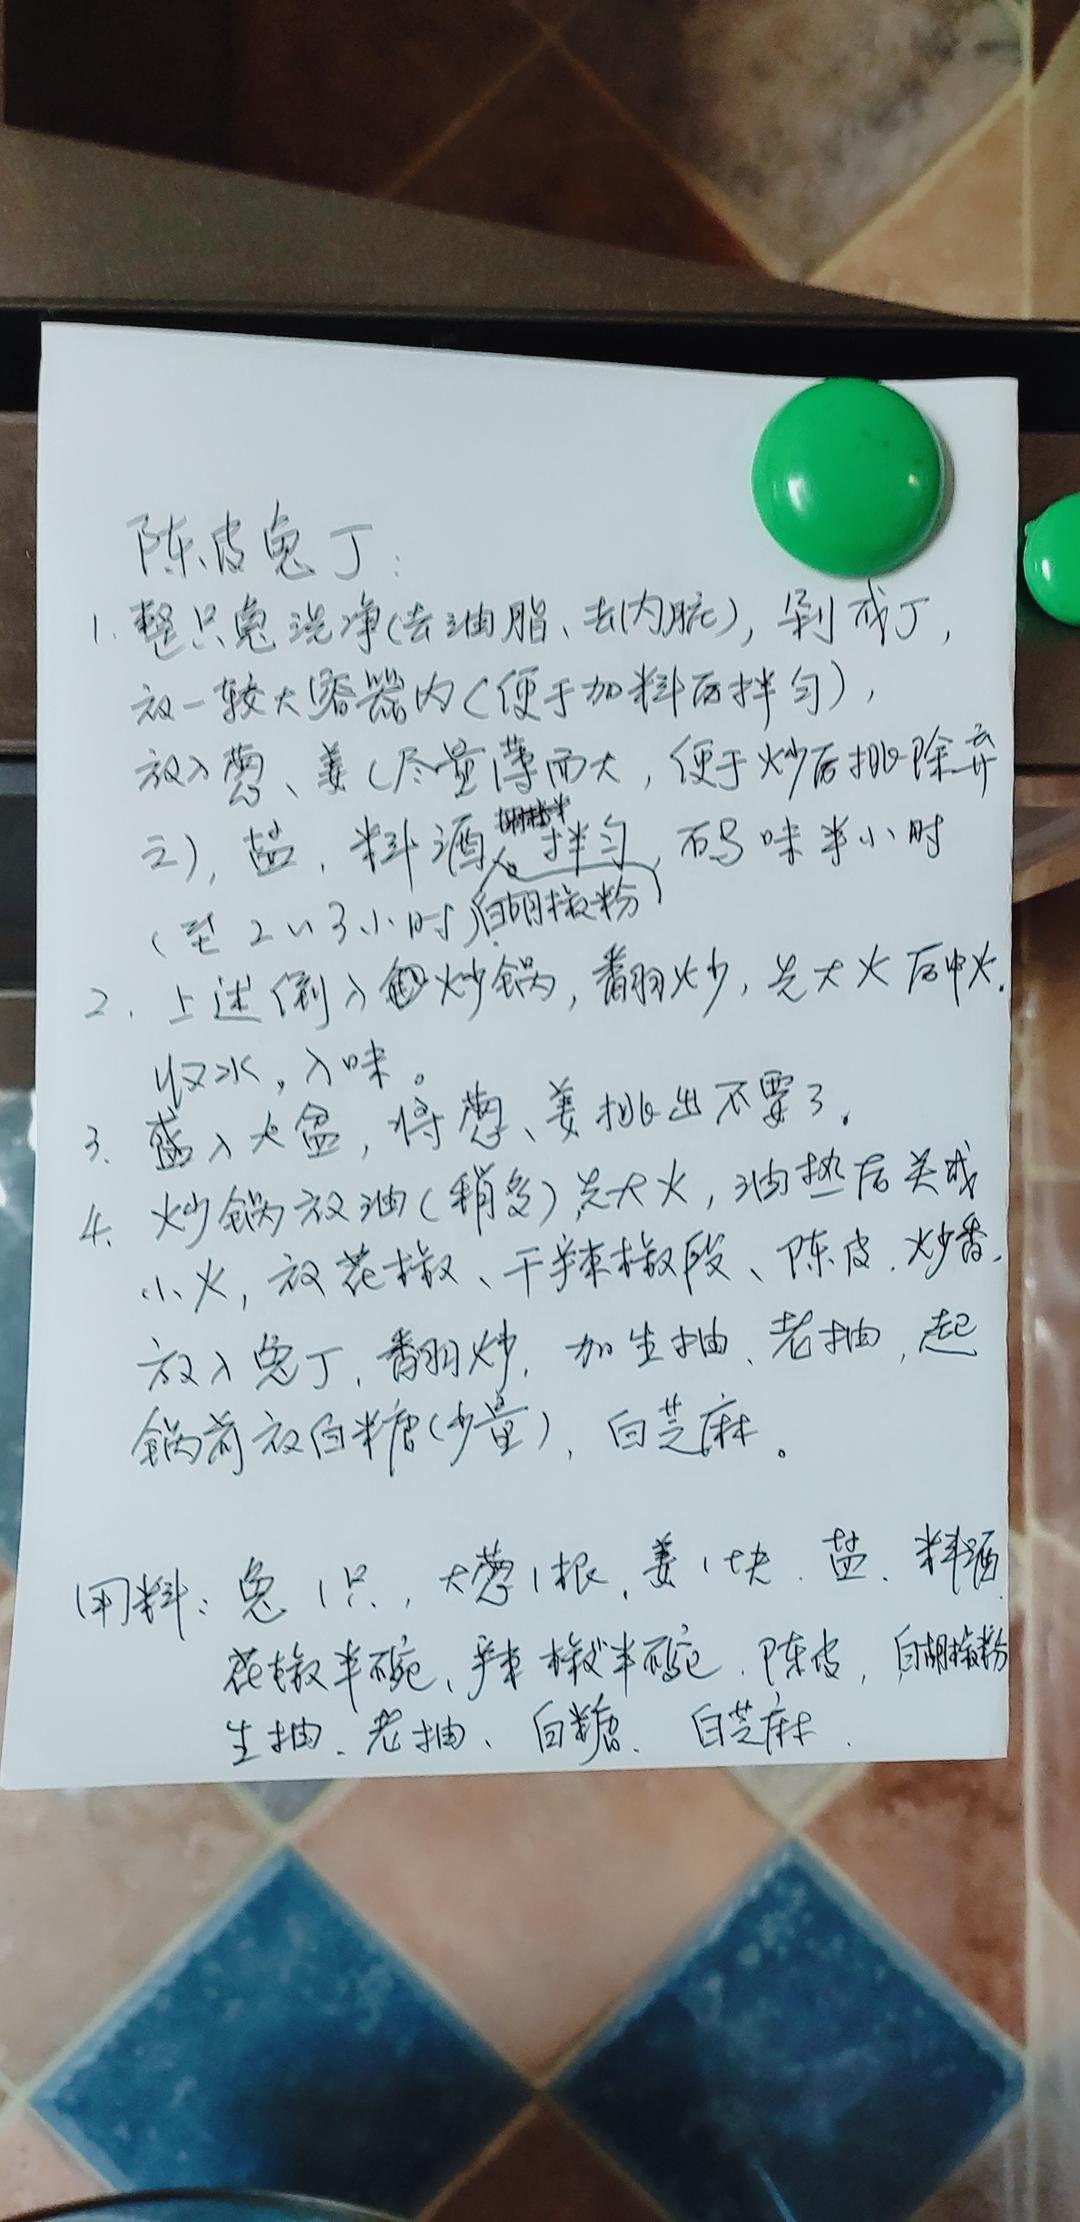 陈皮兔丁：
1. 整只兔洗净(去油脂、去内脏)，剁成丁，
放一较大容器内(便于加料后拌匀)，
放入葱、姜(尽量薄而大，便于炒后挑除弃
之)，盐，料酒、白胡椒粉拌匀，码味半小时
(至2~3小时)
2. 上述倒入炒锅，翻炒，先大火后中火.
收水。入味。
3. 盛入大盆，将葱、姜挑出不要了。
4. 炒锅放油(稍多)先大火，油热后关成
小火，放花椒、干辣椒段、陈皮.炒香.
放入兔丁，翻炒，加生抽、老抽，起
锅前放白糖(少量)，白芝麻。
用料：兔1只，大葱1根，姜1块.盐、料酒
花椒半碗、辣椒半碗.陈皮，白胡椒粉
生抽、老抽、白糖、白芝麻.